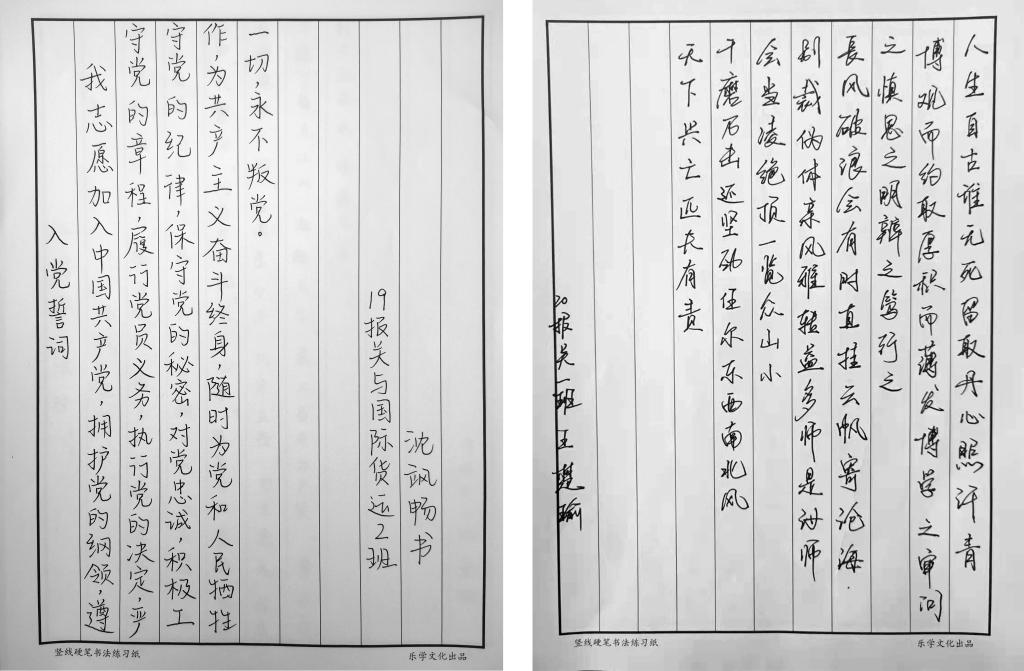 入党誓词
我志愿加入中国共产党，拥护党的纲领，遵
守党的章程，履行党员义务，执行党的决定，严
守党的纪律，保守党的秘密，对党忠诚，积极工
作，为共产主义奋斗终身，随时为党和人民牺牲
一切，永不叛党。
19报关与国际货运2班
沈飒畅书
竖线硬笔书法练习纸
乐学文化出品
人生自古谁无死留取丹心照汗青
博观而约取厚积而薄发博学之审问
之慎思之明辨之笃行之
長风破浪会有时直挂云帆寄沧海.
别裁伪体亲风雅转益多师是汝师
会当凌绝顶一览众山小
千磨万击还坚劲任尔东西南北风
天下兴亡匹夫有责
20报关一班王楚瑜
竖线硬笔书法练习纸
乐学文化出品